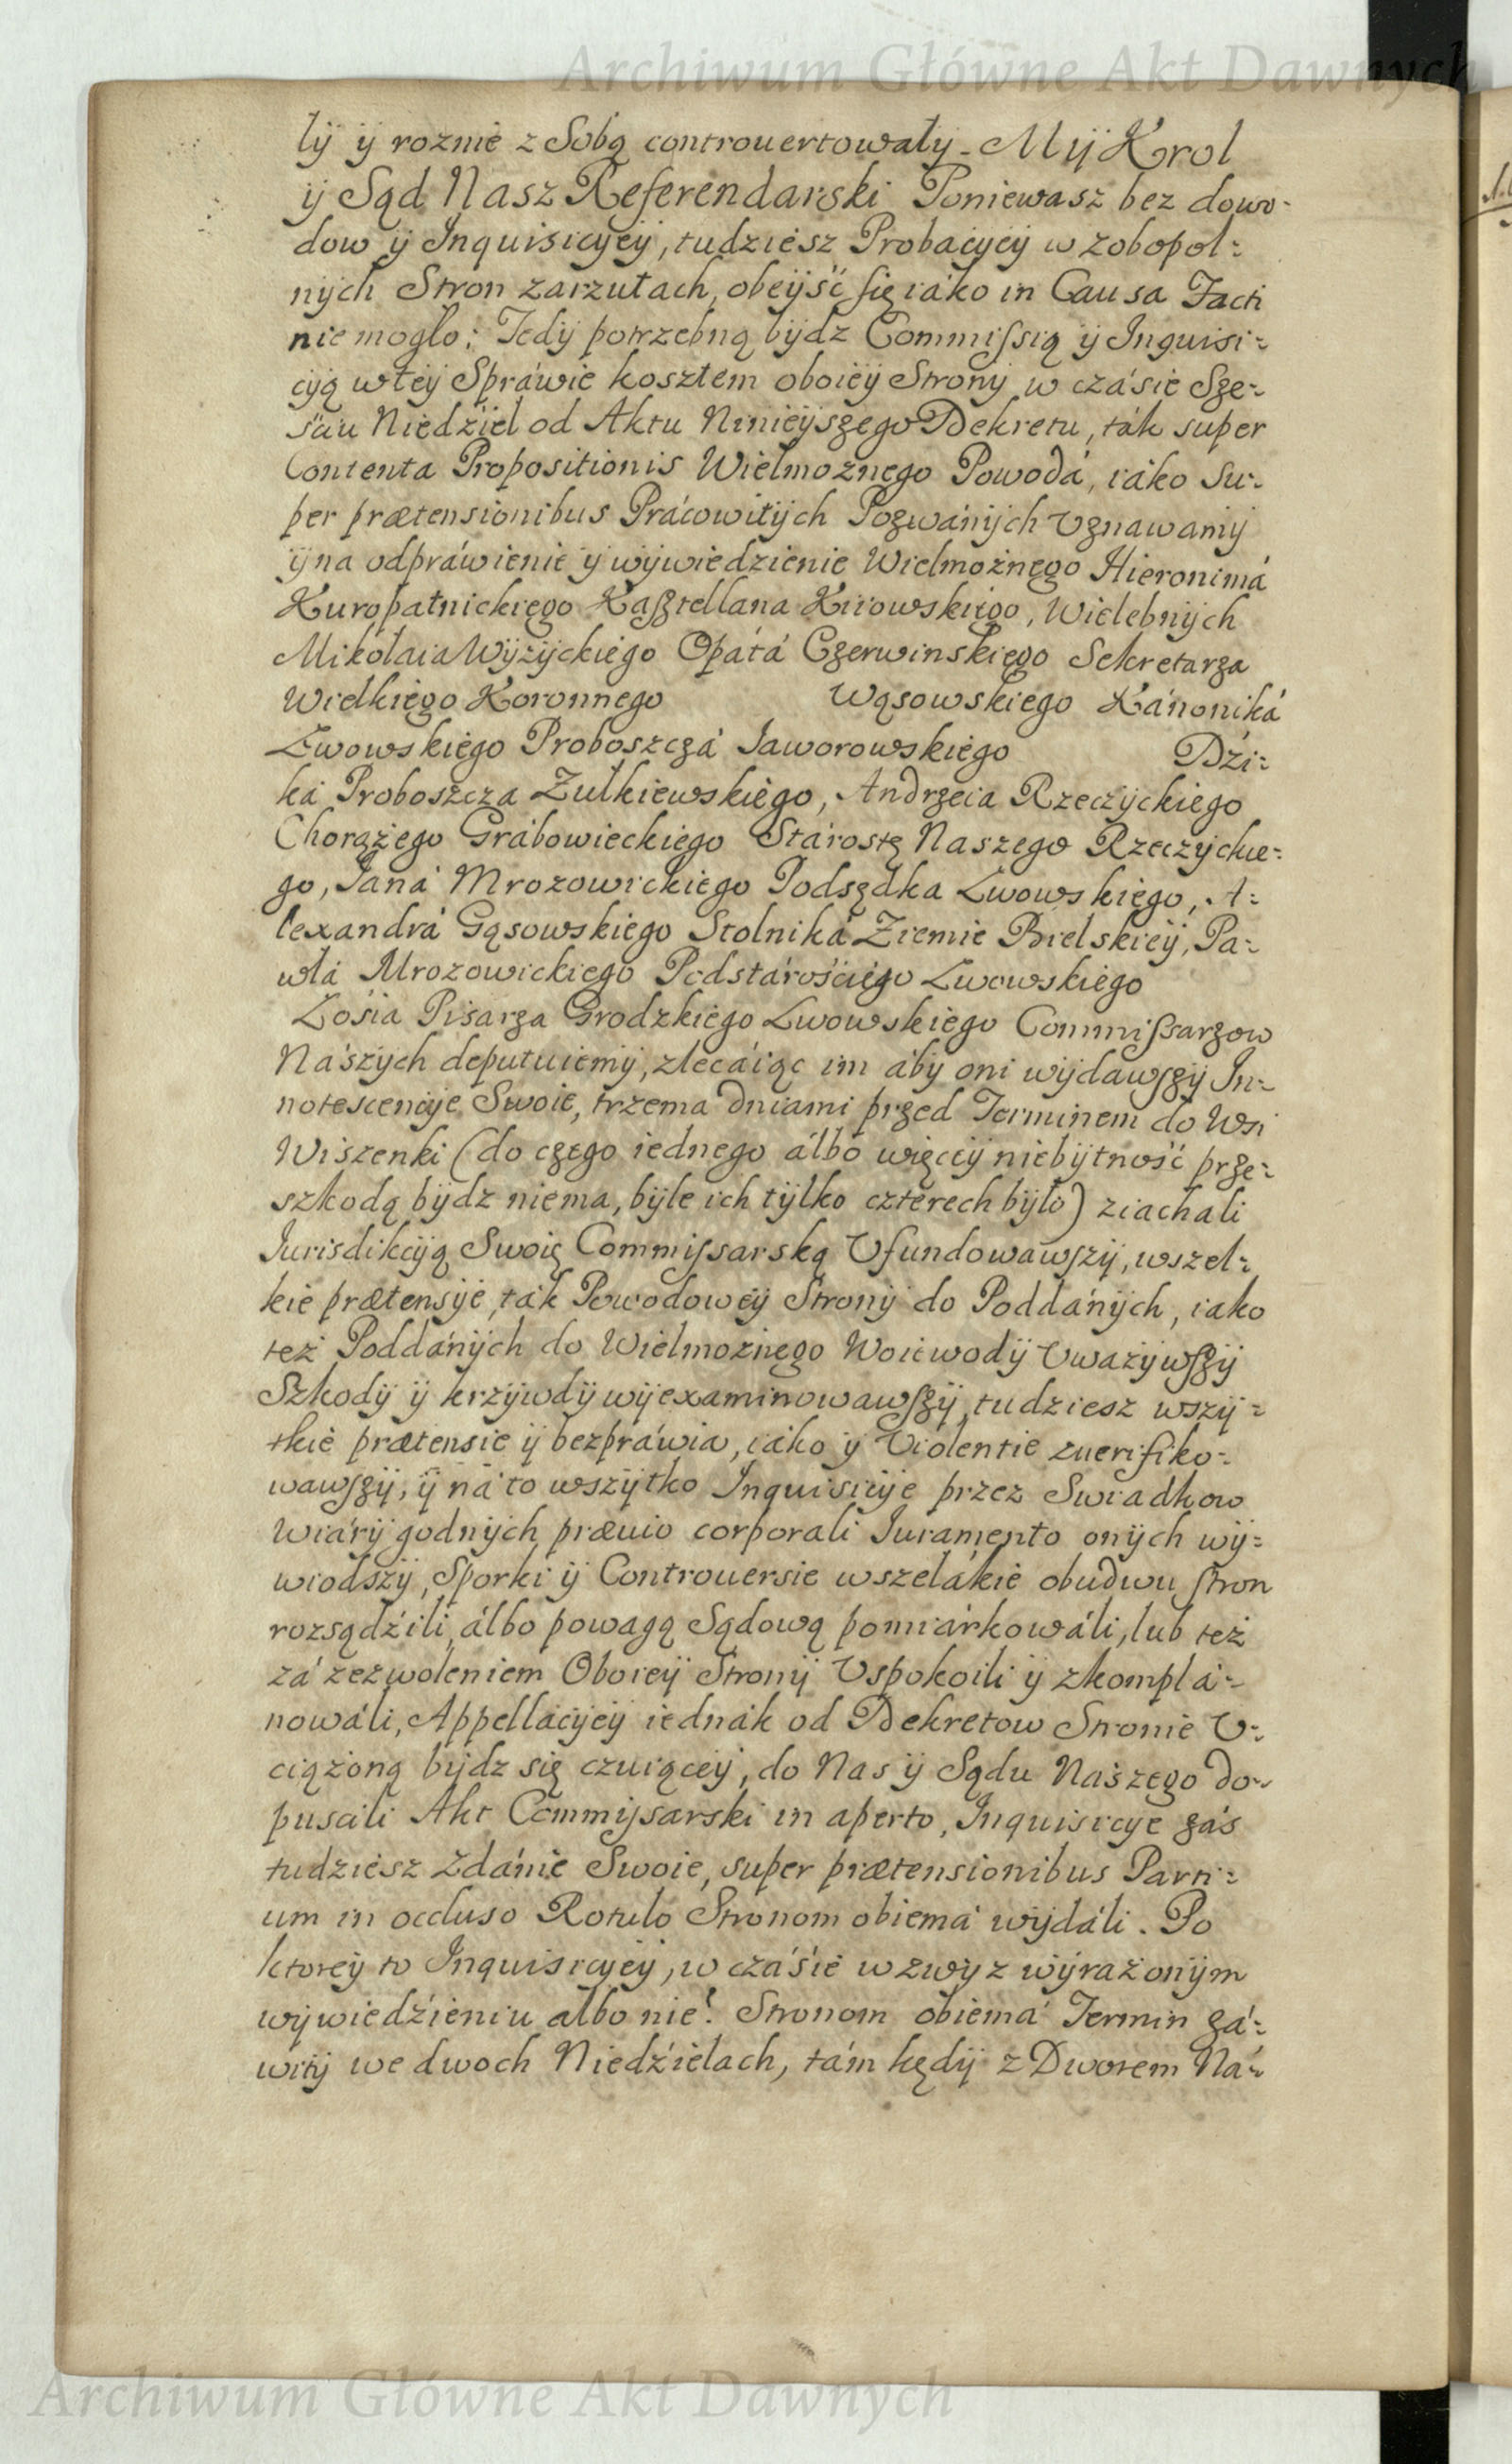 Archiwum Główne Akt Dawnych
lÿ ÿ roznie z Sobą controuertowałÿ. Mÿ Krol
ÿ Sąd Nasz Referendarski Poniewasz bez dowo-
dow ÿ Inquisicÿeÿ, tudziesz Probacÿeÿ w zobopol=
nÿch Stron zarzutach, obeÿść się iáko in Causa Facti
nie mogło; Tedÿ potrzebną bÿdz Commissią ÿ Inquisi=
cÿą w teÿ Spráwie kosztem oboieÿ Stronÿ w czásie Sze=
sciu Niedźiel od Aktu Ninieÿszego Dekretu, ták super
Contenta Propositionis Wielmożnego Powodá, iáko Su=
per prætensionibus Prácowitÿch Pozwánÿch Vznawamÿ
ÿ na odpráwienie ÿ wÿwiedzienie Wielmożnego Hieronimá
Kuropatnickiego Kasztellana Kiiowskiego, Wielebnÿch
Mikołaia Wÿżÿckiego Opátá Czerwinskiego Sekretarza
Wielkiego Koronnego Wąsowskiego Kánoniká
Lwowskiego Proboszczá Jaworowskiego Dźi=
ká Proboszcza Zułkiewskiego, Andrzeia Rzeczÿckiego
Chorążego Grábowieckiego Stárostę Naszego Rzeczÿckie=
go, Janá Mrozowickiego Podsędka Lwowskiego, A=
lexandrá Gąsowskiego Stolniká Ziemie Bielskieÿ, Pa=
włá Mrozowickiego Podstárościego Lwowskiego
Łosia Pisarza Grodzkiego Lwowskiego Commissarzow
Nászÿch deputuiemÿ, zlecáiąc im ábÿ oni wÿdawszÿ In=
notescencÿe Swoie, trzema dniami przed Terminem do Wsi
Wiszenki (do czego iednego álbo więceÿ niebÿtność prze=
szkodą bÿdz niema, bÿle ich tÿlko czterech bÿło) ziachali
Jurisdikcÿą Swoię Commissarską Vfundowawszÿ, wszel=
kie prætensÿe, ták Powodoweÿ Stronÿ do Poddánÿch, iako
też Poddánÿch do Wielmożnego Woiewodÿ Vważÿwszÿ
Szkodÿ ÿ krzÿwdÿ wÿexaminowawszÿ, tudziesz wszÿ=
tkie prætensie ÿ bezpráwia, iáko ÿ Violentie zuerifiko=
wawszÿ, ÿ ná to wszÿtko Inquisicÿe przez Swiadkow
Wiárÿ godnÿch, præuio corporali Iuramento onÿch wÿ=
wiodszÿ, Sporki ÿ Controuersie wszelákie obudwu stron
rozsądźili, álbo powagą Sądową pomiárkowáli, lub też
zá zezwoleniem Oboieÿ Stronÿ Vspokoili ÿ zkomplá=
nowáli, Appellácÿeÿ iednák od Dekretow Stronie V=
ciążoną bÿdz się czuiąceÿ, do Nas ÿ Sądu Nászego do=
puscili Akt Commissarski in aperto, Inquisicÿe zás
tudziesz Zdánie Swoie, super prætensionibus Parti=
um in occluso Rotulo Stronom obiemá wÿdáli. Po
ktoreÿ to Inquisicÿeÿ, w czásie wzwÿz wÿrażonÿm
wÿwiedźieniu álbo nie! Stronom obiemá Termin zá=
witÿ we dwoch Niedźielach, tám kędÿ z Dworem Ná=
Archiwum Główne Akt Dawnych